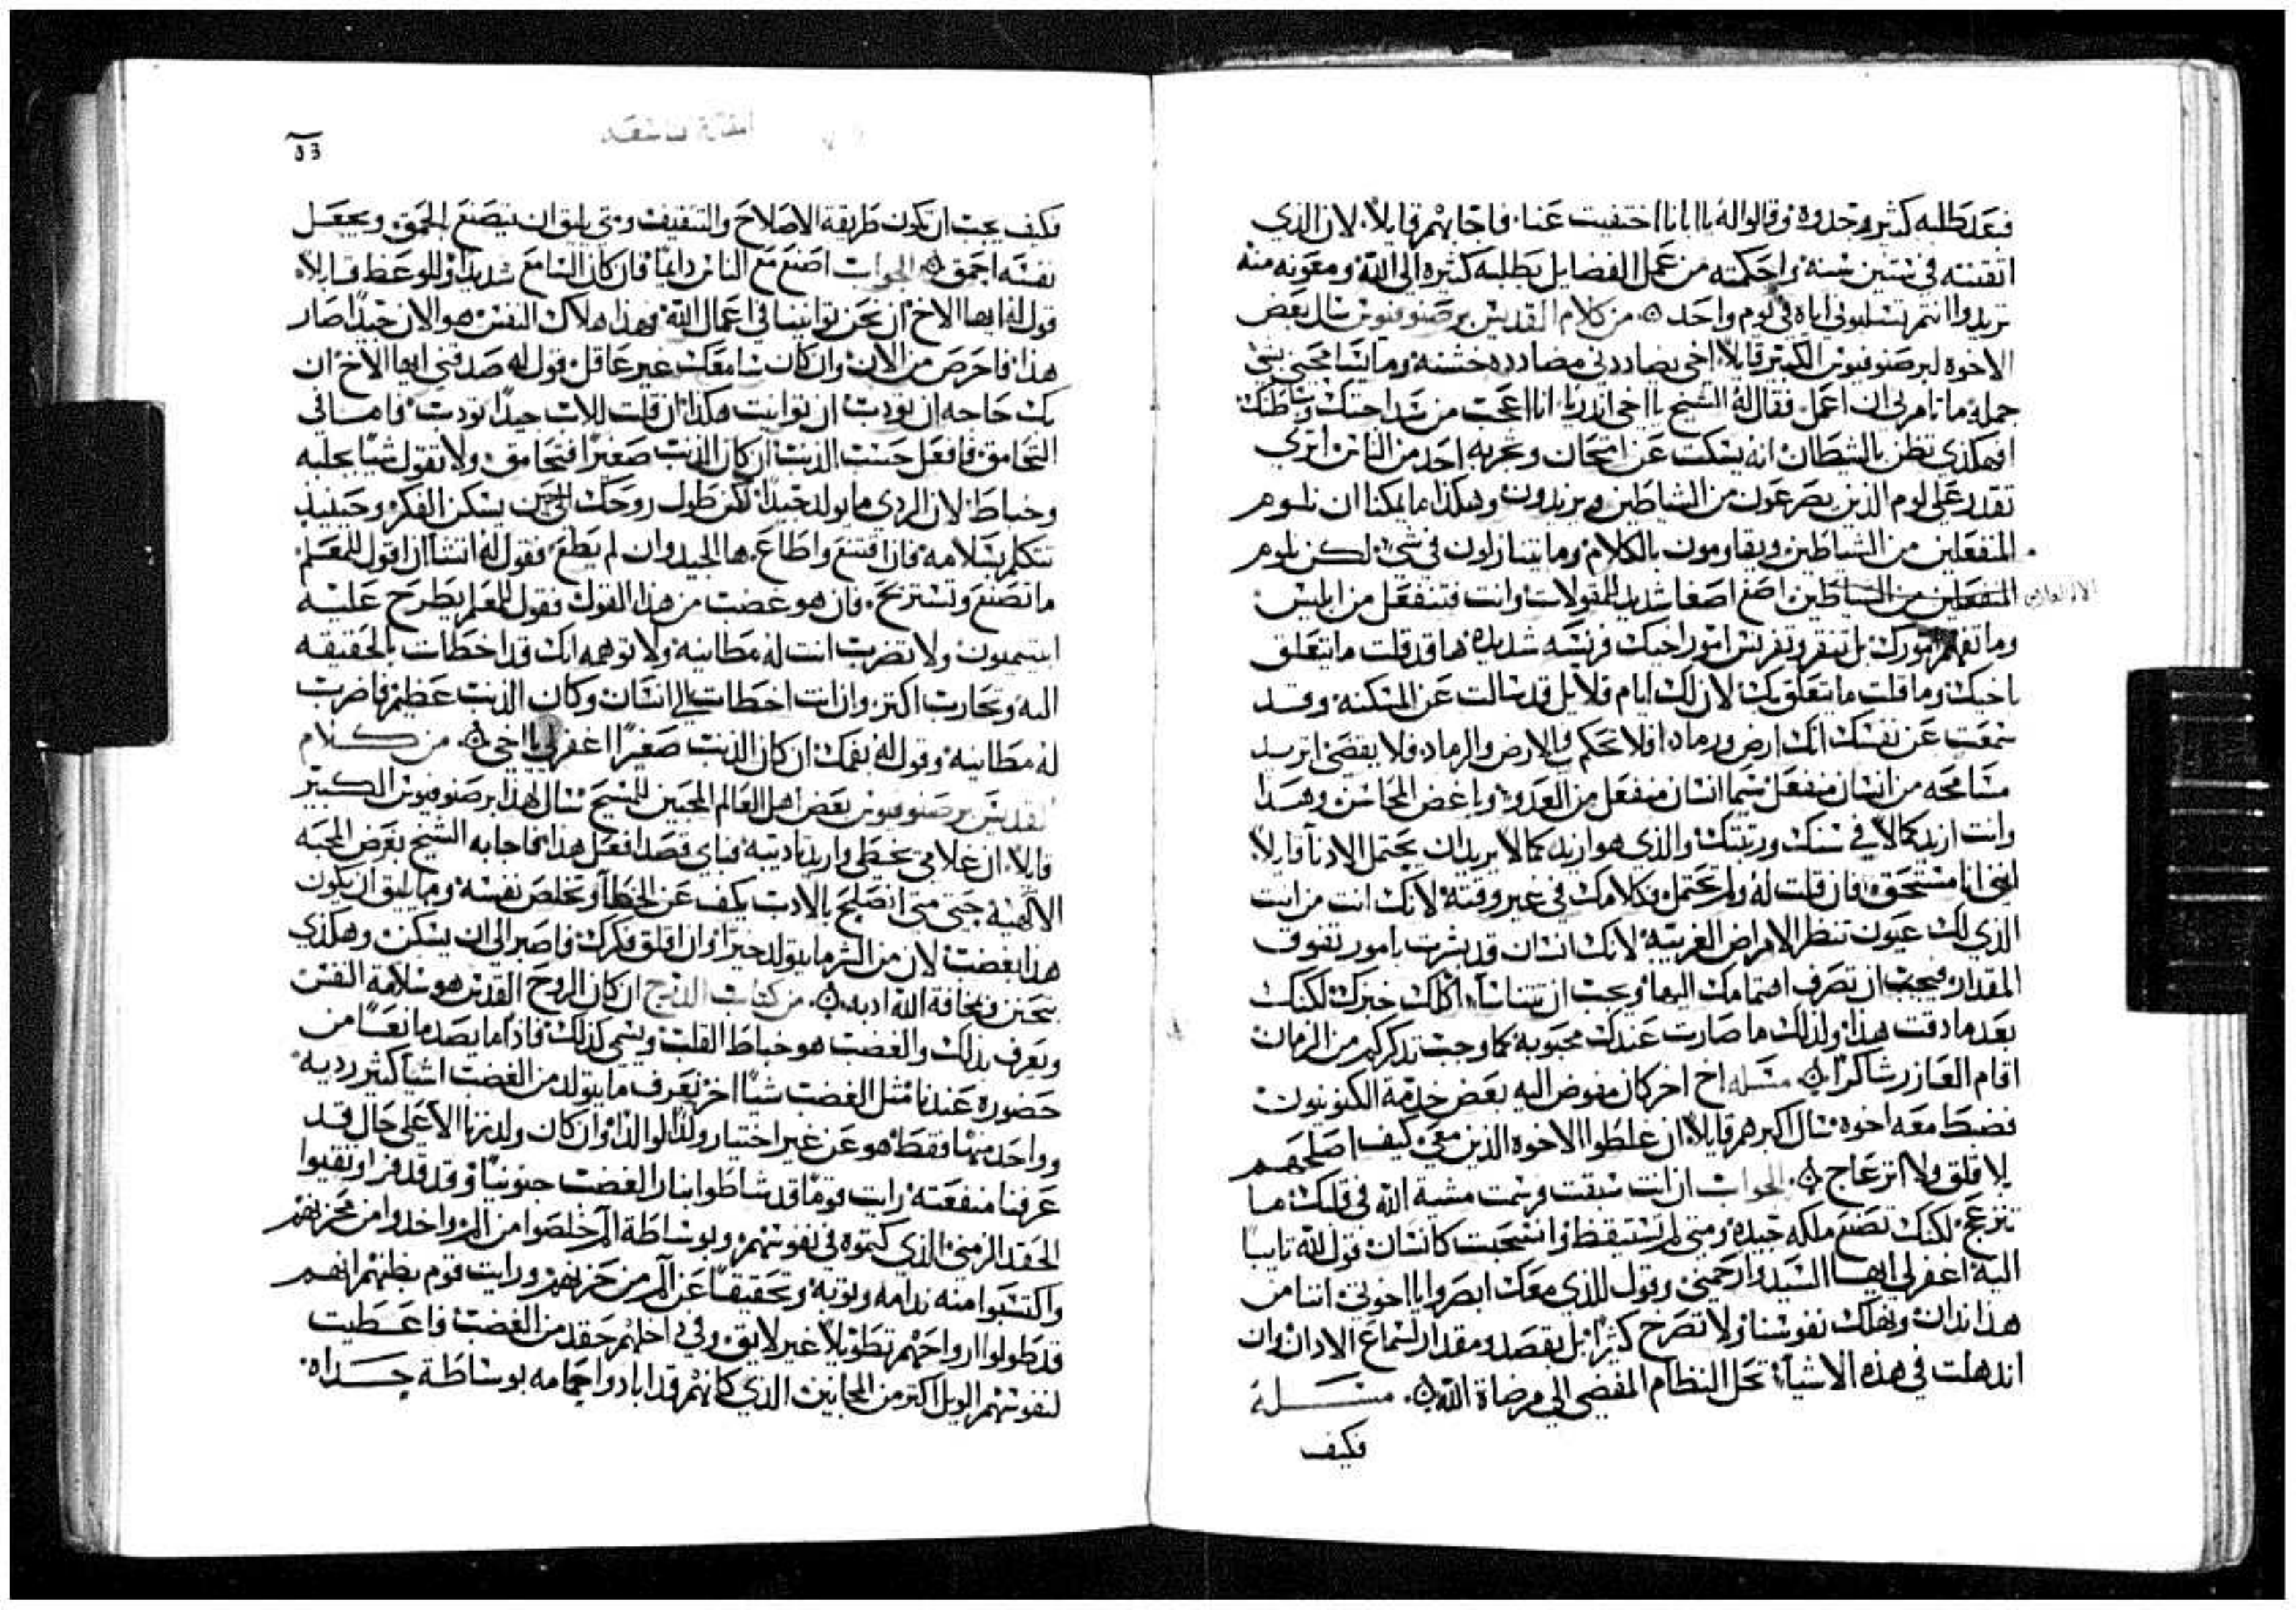 فبعد طلبه كثير وجدوه وقالوا له يا ابانا اختفيت عنا فاجابهم قايلاً لان الذي
اتقنته في ستين سنه واحكمته من عمل الفضايل بطلبه كثيره الى الله ومعونه منه
تريدوا انتم تسلبوني اياه في يوم واحد من كلام القديس برصنوفيوس سال بعض
الاخوه لبرصنوفيوس الكبير قايلاً اخي يضاددني مضادده خشنه وما يسامحني بشي
جملة ما تامرني ان اعمل فقال له الشيخ يا اخي اندريا انا اعجب من سداجتك
افهكذي تظن بالشيطان انه يسكت عن امتحان وتجربه احد من الناس اترى
تقدر على لوم الذين يصرعون من الشياطين ويزبدون وهكذا ما يمكنا ان نلوم
المنفعلين من الشياطين ويقاومون بالكلام وما يتنازلون في شي لكن نلوم
المنفعلين من الشياطين اصغ اصغا شديد للمقولات وانت فتنفعل من ابليس
وما تفهم امورك بل تنقر وتفرتش امور اخيك فرتشه شديده ها قد قلت ما يتعلق
باخيك وما قلت ما يتعلق بك لان لك ايام قلايل قد سالت عن المسكنه وقد
سمعت عن نفسك انك ارض ورماد افلا تحكم في الارض والرماد ولا بقضى اتريد
مسامحه من انسان منفعل سيما انسان منفعل من العدو وباغض المحاسن وهذا
وانت اريد كمالاً في سنك ورتبتك والذي هو ازيد كمالاً يريد ان يحتمل الادنا قايلاً
انني انا مستحق فان قلت له ولم يحتمل فكلامك في غير وقته لانك انت من اين
الذي لك عيون تنظر الامراض الغريبه لانك انسان قد بشرت بامور تفوق
المقدار فيجب ان تصرف اهتمامك اليها ويجب ان تتناسا اكلك خبزك لكنك
بعد ما دقت هذا ولذلك ما صارت عندك محبوبه كما وجب تذكر كم من الزمان
اقام العازر شاكراً مسله اخ اخر كان مفوض اليه بعض خدمة الكنوبيون
فضبط معه اخوه سال اكبرهم قايلاً ان غلطوا الاخوه الذين معي كيف اصلحهم
بلا قلق ولا انزعاج الجواب ان انت سبقت ورسمت مشية الله في قلبك ما
تنزعج لكنك تصنع ملكه جيده ومتى لم تستيقظ وانسحبت كانسان قول لله تايبا
اليه اغفر لي ايها السيد وارحمني وقول للذي معك ابصروا يا اخوتي اننا من
هذا ندان ونهلك نفوسنا ولا تصرخ كثيرا بل بقصد ومقدار لسماع الادان وان
اندهلت في هذه الاشيا تحل النظام المفضي الى مرضاة الله مسله
فكيف
فكيف يجب ان تكون طريقة الاصلاح والتثقيف ومتى يليق ان يتصنع الحمق ويجعل
نفسه احمق الجواب اصنع مع الناس دايماً فان كان السامع شديداً وللوعظ قابلاً
قول له ايها الاخ ان نحن توانينا في اعمال الله وهذا هلاك النفس هو الان جيداً صار
هذا فاحرص من الان وان كان سامعك غير عاقل قول له صدقني ايها الاخ ان
بك حاجه ان تودب ان توانيت هكذا ان قلت للاب جيداً تودب فاما في
التحامق فافعل حسب الذنب ان كان الذنب صغيراً فتحامق ولا تقول شيا بجلبه
وخباط لان الردي ما يولد جيداً لكن طول روحك الى حين يسكن الفكر وحينيذ
تتكلم بسلامه فان اقتنع واطاع ها الجيد وان لم يطع فقول له اتشا ان اقول للمعلم
ما تصنع وتستريح فان هو غضب من هذا القول فقول للمعلم يطرح عليه
ابيتيميون ولا تضرب انت له مطانيه ولا توهمه انك قد اخطات بالحقيقه
اليه وتحارب اكتر وان انت اخطات الى انسان وكان الذنب عظيم فاضرب
له مطانيه وقول له بفمك ان كان الذنب صغيراً اغفر لي يا اخي من كلام
القديس برصنوفيوس بعض اهل العالم المحبين للمسيح سال لهذا برصنوفيوس الكبير
قايلاً ان غلامي يخطي واريد تاديبه فباي قصد افعل هذا فاجابه الشيخ بغرض المحبه
الالهيه حتى متى انصلح بالادب يكف عن الخطا وتخلص نفسه وما يليق ان يكون
هذا بغضب لان من الشر ما يتولد خيراً وان اقلق فكرك فاصبر الى ان يسكن وهكذي
بتحنن ومخافة الله ادبه من كتاب الدرج ان كان الروح القدس هو سلامة النفس
ويعرف بذلك والغضب هو خباط القلب ويسمى كذلك فاذا ما يصد مانعاً من
حضوره عندنا مثل الغضب شياً اخر نعرف ما يتولد من الغضب اشيا كثير رديه
وواحد منها فقط هو عن غير اختيار ولداً لو الدا وان كان ولد زنا الا على حال قد
عرفنا منفعته رايت قوماً قد شاطوا بنار الغضب جنونياً وقد قدفوا ونقيوا
الحقد الزمني الذي كتموه في نفوسهم وبوساطة الم خلصوا من الم واخدوا من محزنهم
واكتسبوا منه ندامه وتوبه وتحقيقاً عن الم من حزنهم ورايت قوم بظنهم انهم
قد طولوا ارواحهم تطويلاً غير لايق وفي داخلهم حقد من الغضب فاعطيت
لنفوسهم الويل اكتر من المجانين الذي كانهم قد ابادوا حمامه بوساطة جداه